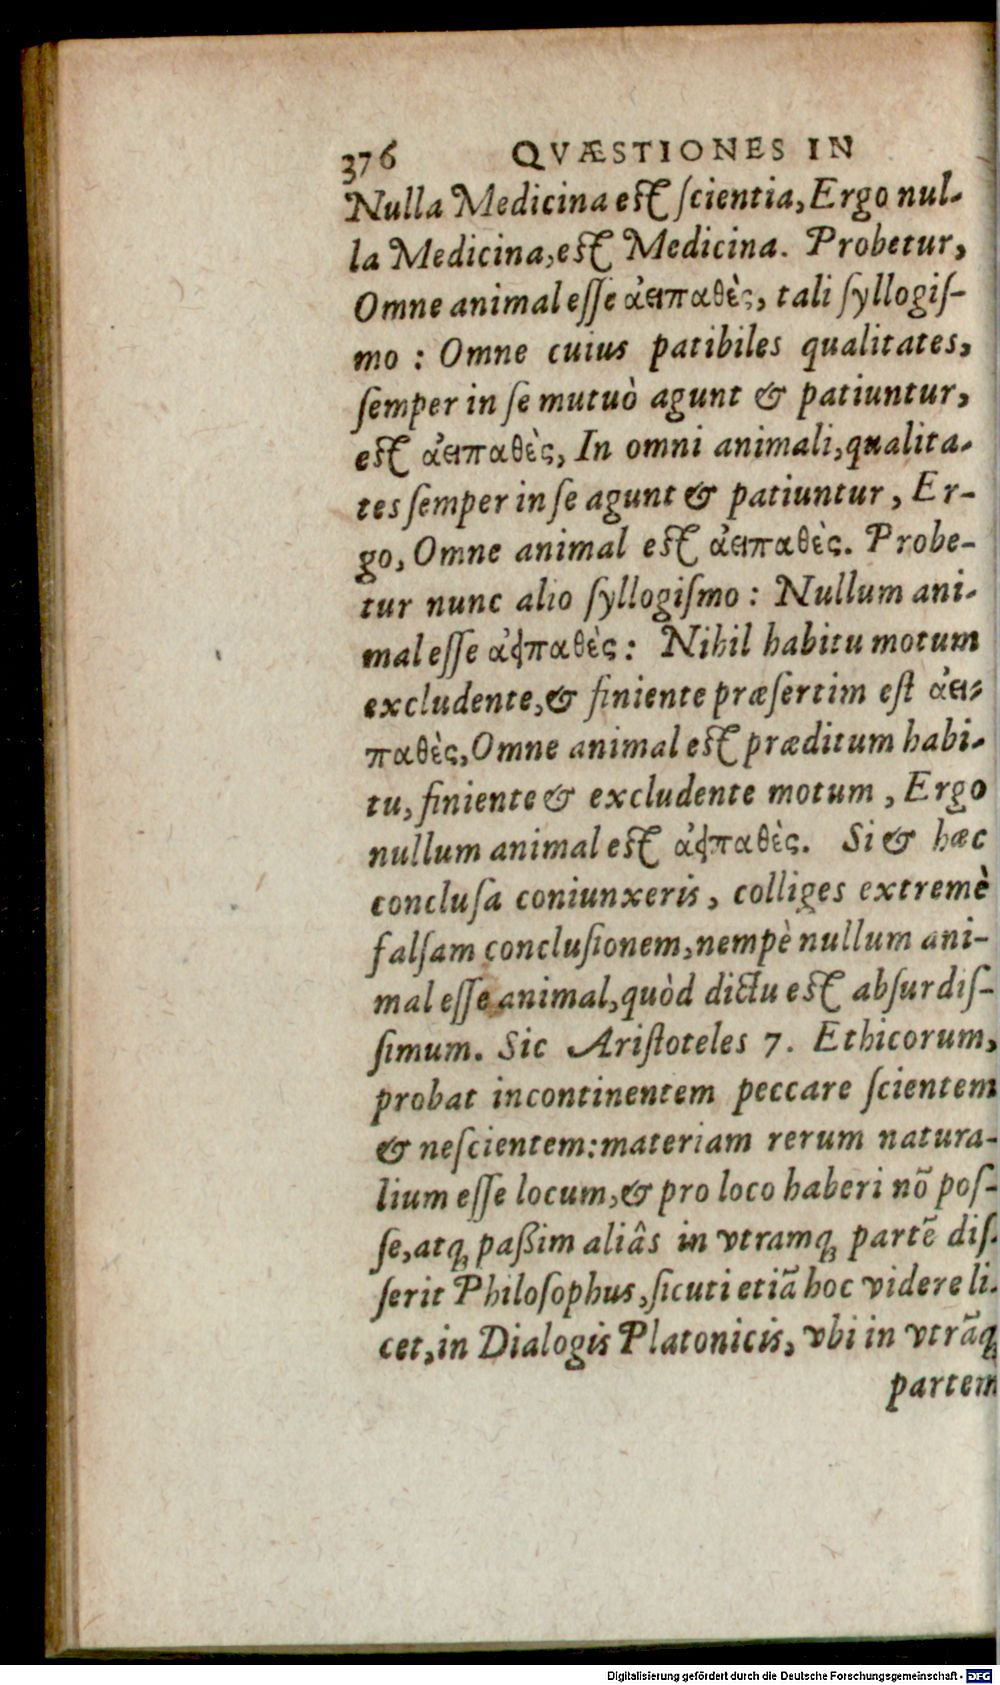 376 QVÆSTIONES IN
Nulla Medicina est ſcientia, Ergo nul-
la Medicina, est Medicina. Probetur,
Omne animal eſſe ἀειπαθὲς, tali ſyllogiſ-
mo : Omne cuius patibiles qualitates,
ſemper in ſe mutuò agunt & patiuntur,
est ἀειπαθὲς, In omni animali, qualita-
tes ſemper in ſe agunt & patiuntur, Er-
go, Omne animal est ἀειπαθὲς. Probe-
tur nunc alio ſyllogiſmo : Nullum ani-
mal eſſe ἀειπαθὲς : Nihil habitu motum
excludente, & finiente præſertim eſt ἀει-
παθὲς, Omne animal est præditum habi-
tu, finiente & excludente motum, Ergo
nullum animal est ἀειπαθὲς. Si & hæc
concluſa coniunxeris, colliges extremè
falſam concluſionem, nempè nullum ani-
mal eſſe animal, quòd dictu est abſurdiſ-
ſimum. Sic Ariſtoteles 7. Ethicorum,
probat incontinentem peccare ſcientem
& neſcientem: materiam rerum natura-
lium eſſe locum, & pro loco haberi nõ poſ-
ſe, atq; paßim aliâs in vtramq; partẽ diſ-
ſerit Philoſophus, ſicuti etiã hoc videre li-
cet, in Dialogis Platonicis, vbi in vtrãq;
partem
Digitalisierung gefördert durch die Deutsche Forschungsgemeinschaft - DFG